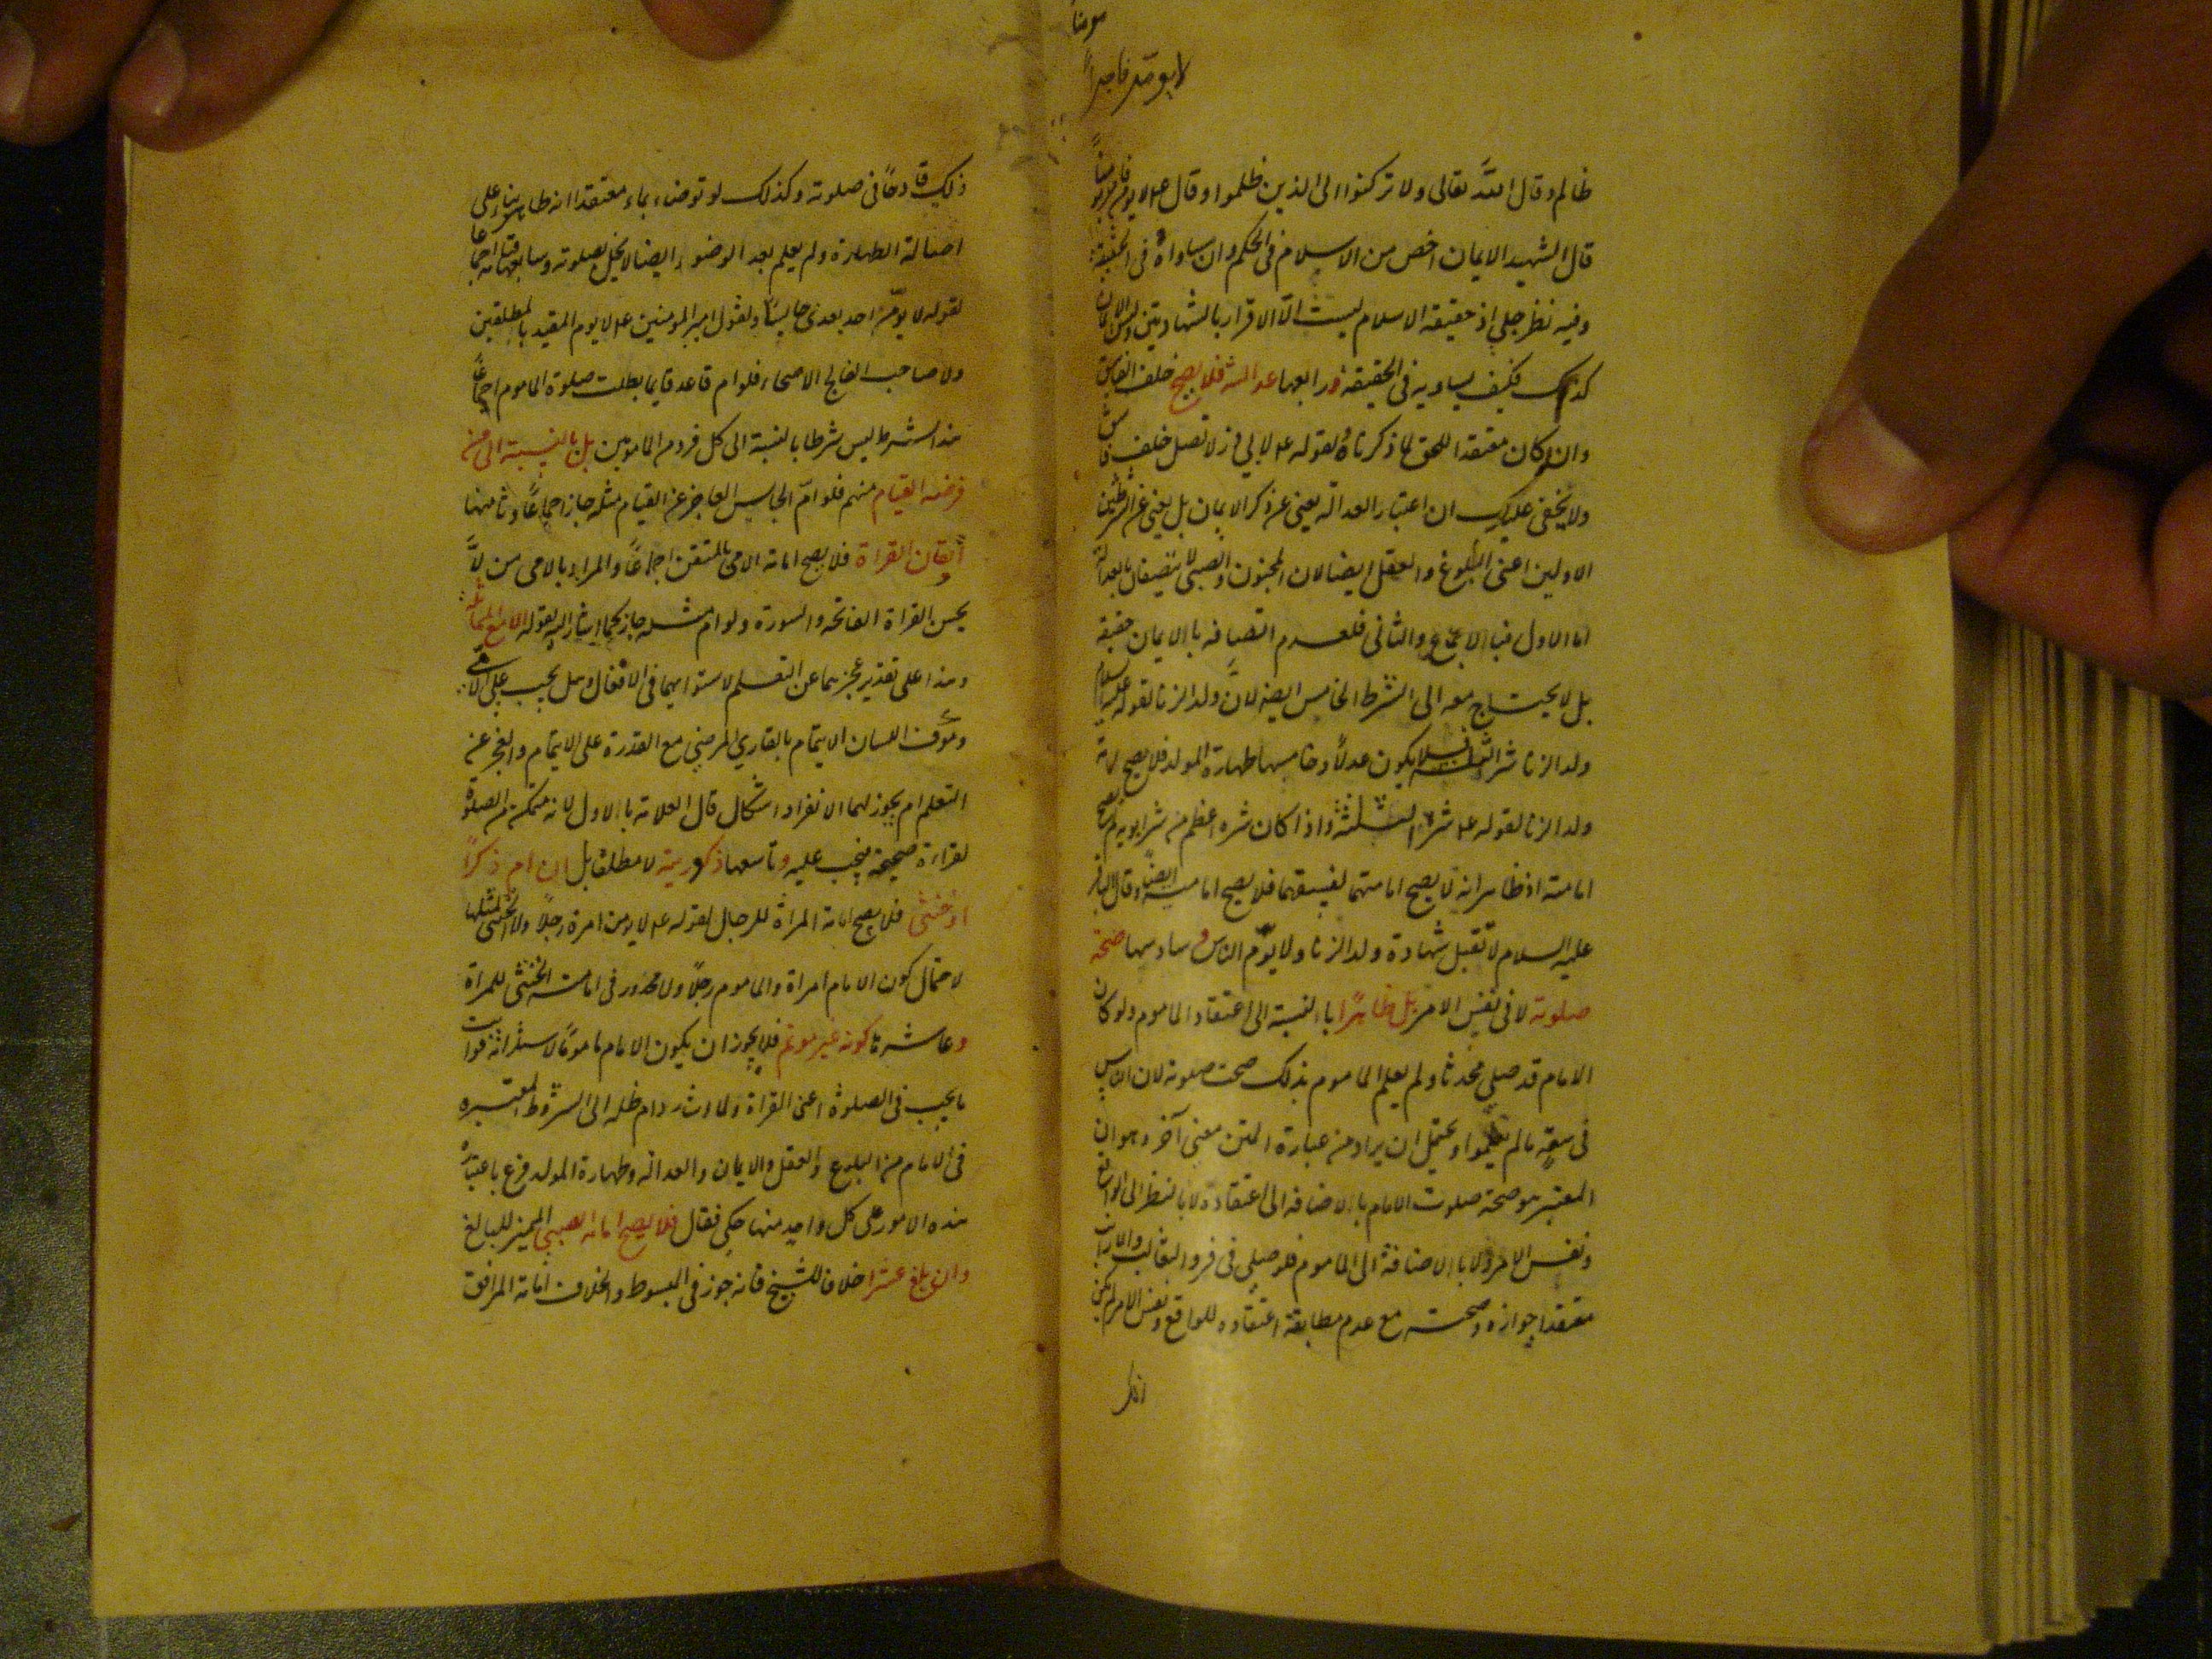 مومنا
لا یوم فاجرا
ظالم وقال الله تعالی ولا ترکنوا الی الذین ظلموا وقال ع لا یوم فاجر مومنا
قال الشهید الایمان اخص من الاسلام فی الحکم وان ساواه فی الحقیقة
وفیه نظر جلی اذ حقیقة الاسلام لیست الا الاقرار بالشهادتین ولیس الایمان
کذلک فکیف یساویه فی الحقیقة ورابعها عدالته فلا یصح خلف الفاسق
وان کان معتقدا للحق لما ذکرناه ولقوله ع لابی ذر لا تصل خلف فاسق
ولا یخفی علیک ان اعتبار العدالة یغنی عن ذکر الایمان بل یغنی عن الشرطین
الاولین اعنی البلوغ والعقل ایضا لان المجنون والصبی لا یتصفان بالعدالة
اما الاول فبالاجماع والثانی فلعدم اتصافه بالایمان حقیقة
بل لا یحتاج معه الی الشرط الخامس ایضا لان ولد الزنا لقوله علیه السلام
ولد الزنا شر الثلثة لا یکون عدلا وخامسها طهارة المولد فلا یصح امامة
ولد الزنا لقوله ع شر الثلثة واذا کان شره اعظم من شر ابویه لم یصح
امامته اذ ظاهر انه لا یصح امامتهما لفسقهما فلا یصح امامته ایضا وقال الباقر
علیه السلام لا تقبل شهادة ولد الزنا ولا یؤم الناس وسادسها صحة
صلوته لا فی نفس الامر بل ظاهرا باالنسبة الی اعتقاد الماموم ولو کان
الامام قد صلی محدثا ولم یعلم الماموم بذلک صحت صلوته لان الناس
فی سعة ما لم یعلموا ویحتمل ان یراد من عبارة المتن معنی آخر وهو ان
المعتبر هو صحة صلوت الامام باالاضافه الی اعتقاده ولا بالنظر الی الواقع
ونفس الامر ولا باالاضافة الی الماموم فلو صلی فی فرو الثعالب والارانب
معتقدا جوازه وصحته مع عدم مطابقة اعتقاده للواقع ونفس الامر لم یکن
ذلک قادحا فی صلوته وکذلک لو توضاء بماء معتقدا انه طاهر بناء علی
اصالة الطهارة ولم یعلم بعد الوضوء ایضا لا یخل بصلوته وسابعها قیامه اجماعا
لقوله لا یؤمن احد بعدی جالسا ولقول امیر المومنین ع لا یوم المقید بالمطلقین
ولا صاحب الفالج الاصحاء فلو ام قاعد قایما بطلت صلوة الماموم اجماعا
هذا الشرط لیس شرطا بالنسبة الی کل فرد من المامومین بل بالنسبة الی من
فرضه القیام منهم فلو ام الجالس العاجز عن القیام مثله جاز اجماعا وثامنها
اتقان القراة فلا یصح امامة الامی بالمتقن اجماعا والمراد بالامی من لا
یحسن القراة الفاتحة والسورة ولو ام مثله جاز کما اشار الیه بقوله الا مع المماثلة
وهذا علی تقدیر عجزهما عن التعلم لاستوائهما فی الافعال وهل یجب علی الامی
ومؤف اللسان الایتمام بالقاری المرضی مع القدرة علی الایتمام والعجز عن
التعلم ام یجوز لهما الانفراد اشکال قال العلامة باالاول لانه متمکن من الصلوة
بقراءة صحیحة فیجب علیه وتاسعها ذکوریته لا مطلقا بل ان ام ذکرا
او خنثی فلا یصح امامة المراة للرجال لقوله ع لا یؤمن امرة رجلا ولا الخنثی لمثلها
لاحتمال کون الامام امراة والماموم رجلا ولا محذور فی امامة الخنثی للمراة
وعاشرها کونه غیر موتم فلا یجوز ان یکون الامام ماموما لاستلزامه فوات
ما یجب فی الصلوة اعنی القراة ولما اشار دام ظله الی الشروط المعتبره
فی الامام من البلوغ والعقل والایمان والعدالة وطهارة المولد فرع باعتبار
هذه الامور علی کل واحد منها حکم فقال فلا یصح امامة الصبی الممیز للبالغ
وان بلغ عشرا خلافا للشیخ فانه جوز فی المبسوط والخلاف امامة المراهق